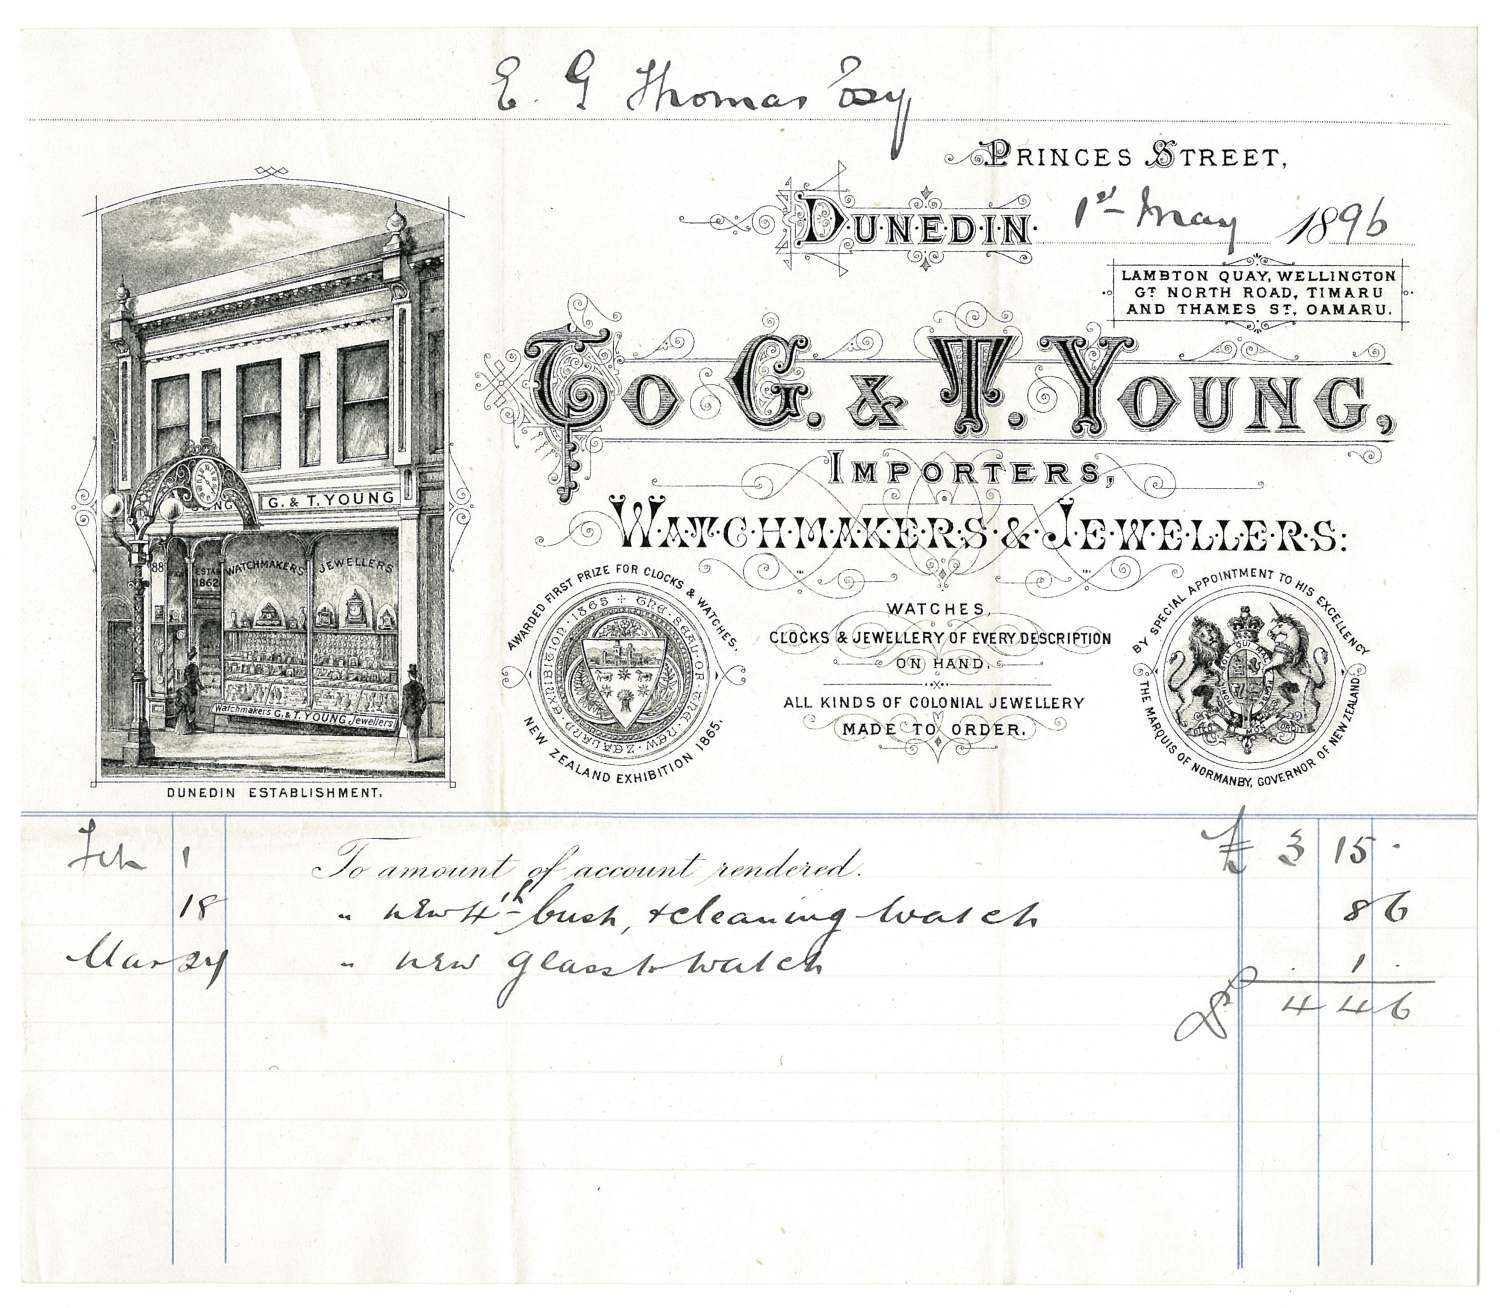 E. G Thomas Esq
PRINCES STREET,
DUNEDIN 1st May 1896
LAMBTON QUAY, WELLINGTON
GT NORTH ROAD, TIMARU
AND THAMES ST, OAMARU.
TO G. & T. YOUNG,
IMPORTERS,
WATCHMAKERS & JEWELLERS:
G. & T. YOUNG
ESTAB
1862
WATCHMAKERS JEWELLERS
Watchmakers G. & T. YOUNG Jewellers
DUNEDIN ESTABLISHMENT.
AWARDED FIRST PRIZE FOR CLOCKS & WATCHES.
NEW ZEALAND EXHIBITION 1865.
THE SEAL OF THE NEW ZEALAND EXHIBITION 1865
WATCHES,
CLOCKS & JEWELLERY OF EVERY DESCRIPTION
ON HAND.
ALL KINDS OF COLONIAL JEWELLERY
MADE TO ORDER.
BY SPECIAL APPOINTMENT TO HIS EXCELLENCY
THE MARQUIS OF NORMANBY, GOVERNOR OF NEW ZEALAND
Feb 1 To amount of account rendered. £ 3 15 -
18 " new 4th bush, & cleaning watch 8 6
Mar 24 " new glass to watch 1 -
£ 4 4 6